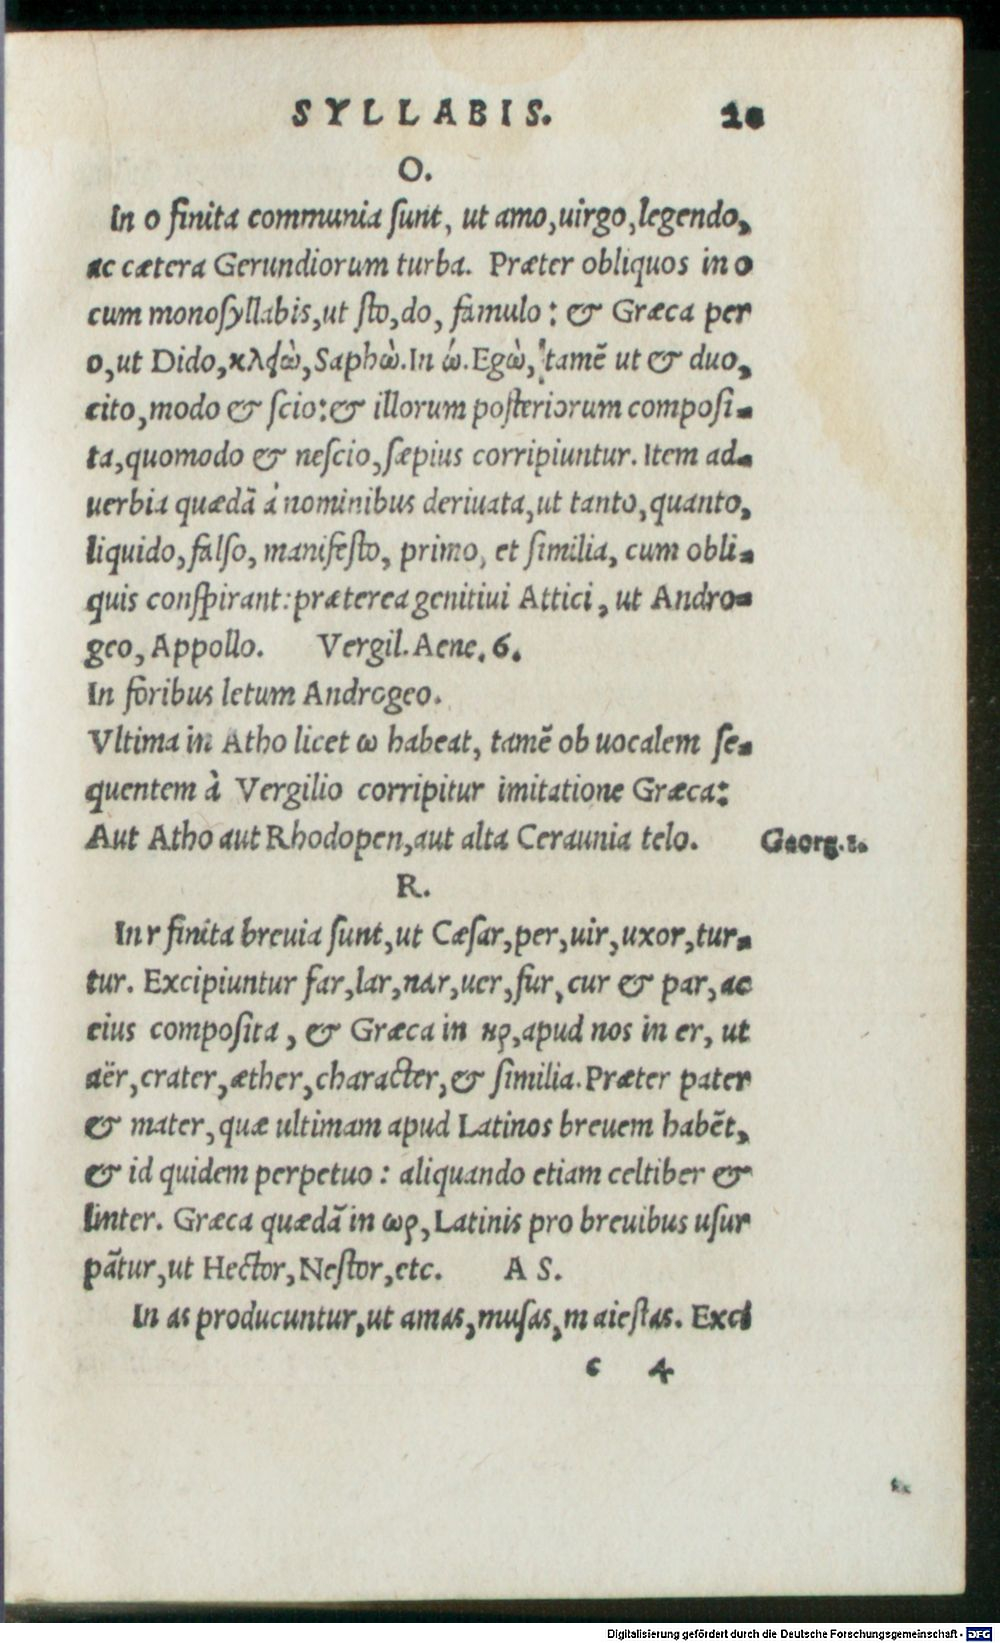 SYLLABIS.
O.
In o finita communia ſunt, ut amo, uirgo, legendo,
ac cætera Gerundiorum turba. Præter obliquos in o
cum monoſyllabis, ut ſto, do, famulo: & Græca per
o, ut Dido, Saphὼ. In ώ. Egὼ, tamẽ ut & duo,
cito, modo & ſcio: & illorum poſteriorum compoſi-
ta, quomodo & neſcio, ſæpius corripiuntur. Item ad-
uerbia quædã á nominibus deriuata, ut tanto, quanto,
liquido, falſo, manifeſto, primo, et ſimilia, cum obli-
quis conſpirant: præterea genitiui Attici, ut Andro-
geo, Appollo. Vergil. Aene. 6.
In foribus letum Androgeo.
Vltima in Atho licet ω habeat, tamẽ ob uocalem ſe-
quentem à Vergilio corripitur imitatione Græca:
Aut Atho aut Rhodopen, aut alta Ceraunia telo. Georg. 1.
R.
In r finita breuia ſunt, ut Cæſar, per, uir, uxor, tur-
tur. Excipiuntur far, lar, nar, uer, fur, cur & par, ac
eius compoſita, & Græca in ηρ, apud nos in er, ut
aër, crater, æther, character, & ſimilia. Præter pater
& mater, quæ ultimam apud Latinos breuem habẽt,
& id quidem perpetuo: aliquando etiam celtiber &
linter. Græca quædã in ωρ, Latinis pro breuibus uſur
pãtur, ut Hector, Neſtor, etc. A S.
In as producuntur, ut amas, muſas, maieſtas. Exci
c 4
Digitalisierung gefördert durch die Deutsche Forschungsgemeinschaft - DFG